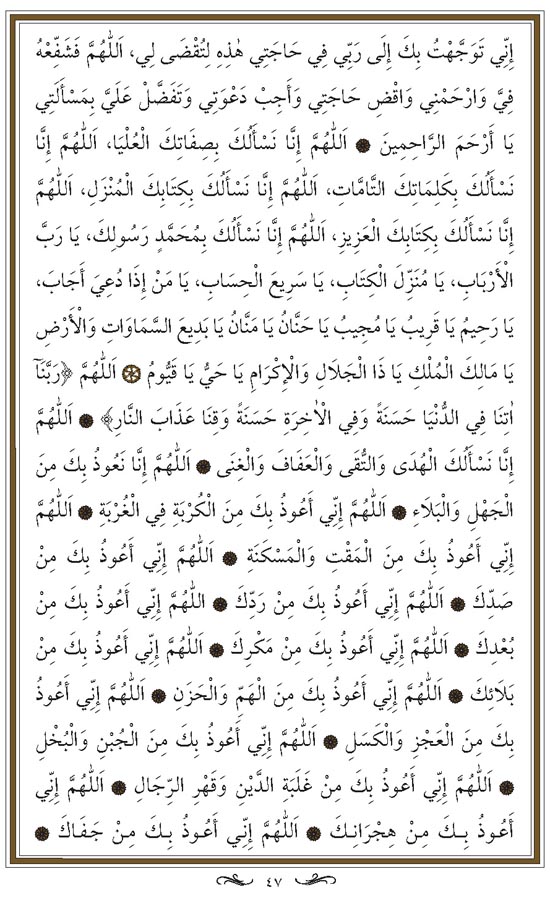 إِنِّي تَوَجَّهْتُ بِكَ إِلَى رَبِّي فِي حَاجَتِي هٰذِهِ لِتُقْضَى لِي، اَللّٰهُمَّ فَشَفِّعْهُ
فِيَّ وَارْحَمْنِي وَاقْضِ حَاجَتِي وَأَجِبْ دَعْوَتِي وَتَفَضَّلْ عَلَيَّ بِمَسْأَلَتِي
يَا أَرْحَمَ الرَّاحِمِينَ ۞ اَللّٰهُمَّ إِنَّا نَسْأَلُكَ بِصِفَاتِكَ الْعُلْيَا، اَللّٰهُمَّ إِنَّا
نَسْأَلُكَ بِكَلِمَاتِكَ التَّامَّاتِ، اَللّٰهُمَّ إِنَّا نَسْأَلُكَ بِكِتَابِكَ الْمُنْزَلِ، اَللّٰهُمَّ
إِنَّا نَسْأَلُكَ بِكِتَابِكَ الْعَزِيزِ، اَللّٰهُمَّ إِنَّا نَسْأَلُكَ بِمُحَمَّدٍ رَسُولِكَ، يَا رَبَّ
الْأَرْبَابِ، يَا مُنَزِّلَ الْكِتَابِ، يَا سَرِيعَ الْحِسَابِ، يَا مَنْ إِذَا دُعِيَ أَجَابَ،
يَا رَحِيمُ يَا قَرِيبُ يَا مُجِيبُ يَا حَنَّانُ يَا مَنَّانُ يَا بَدِيعَ السَّمَاوَاتِ وَالْأَرْضِ
يَا مَالِكَ الْمُلْكِ يَا ذَا الْجَلَالِ وَالْإِكْرَامِ يَا حَيُّ يَا قَيُّومُ ۞ اَللّٰهُمَّ ﴿رَبَّنَآ
اٰتِنَا فِي الدُّنْيَا حَسَنَةً وَفِي الْاٰخِرَةِ حَسَنَةً وَقِنَا عَذَابَ النَّارِ﴾ ۞ اَللّٰهُمَّ
إِنَّا نَسْأَلُكَ الْهُدَى وَالتُّقَى وَالْعَفَافَ وَالْغِنَى ۞ اَللّٰهُمَّ إِنَّا نَعُوذُ بِكَ مِنَ
الْجَهْلِ وَالْبَلَاءِ ۞ اَللّٰهُمَّ إِنِّي أَعُوذُ بِكَ مِنَ الْكُرْبَةِ فِي الْغُرْبَةِ ۞ اَللّٰهُمَّ
إِنِّي أَعُوذُ بِكَ مِنَ الْمَقْتِ وَالْمَسْكَنَةِ ۞ اَللّٰهُمَّ إِنِّي أَعُوذُ بِكَ مِنْ
صَدِّكَ ۞ اَللّٰهُمَّ إِنِّي أَعُوذُ بِكَ مِنْ رَدِّكَ ۞ اللّٰهُمَّ إِنِّي أَعُوذُ بِكَ مِنْ
بُعْدِكَ ۞ اَللّٰهُمَّ إِنِّي أَعُوذُ بِكَ مِنْ مَكْرِكَ ۞ اَللّٰهُمَّ إِنِّي أَعُوذُ بِكَ مِنْ
بَلَائِكَ ۞ اَللّٰهُمَّ إِنِّي أَعُوذُ بِكَ مِنَ الْهَمِّ وَالْحَزَنِ ۞ اَللّٰهُمَّ إِنِّي أَعُوذُ
بِكَ مِنَ الْعَجْزِ وَالْكَسَلِ ۞ اَللّٰهُمَّ إِنِّي أَعُوذُ بِكَ مِنَ الْجُبْنِ وَالْبُخْلِ
۞ اَللّٰهُمَّ إِنِّي أَعُوذُ بِكَ مِنْ غَلَبَةِ الدَّيْنِ وَقَهْرِ الرِّجَالِ ۞ اَللّٰهُمَّ إِنِّي
أَعُوذُ بِكَ مِنْ هِجْرَانِكَ ۞ اَللّٰهُمَّ إِنِّي أَعُوذُ بِكَ مِنْ جَفَاكَ ۞
٤٧